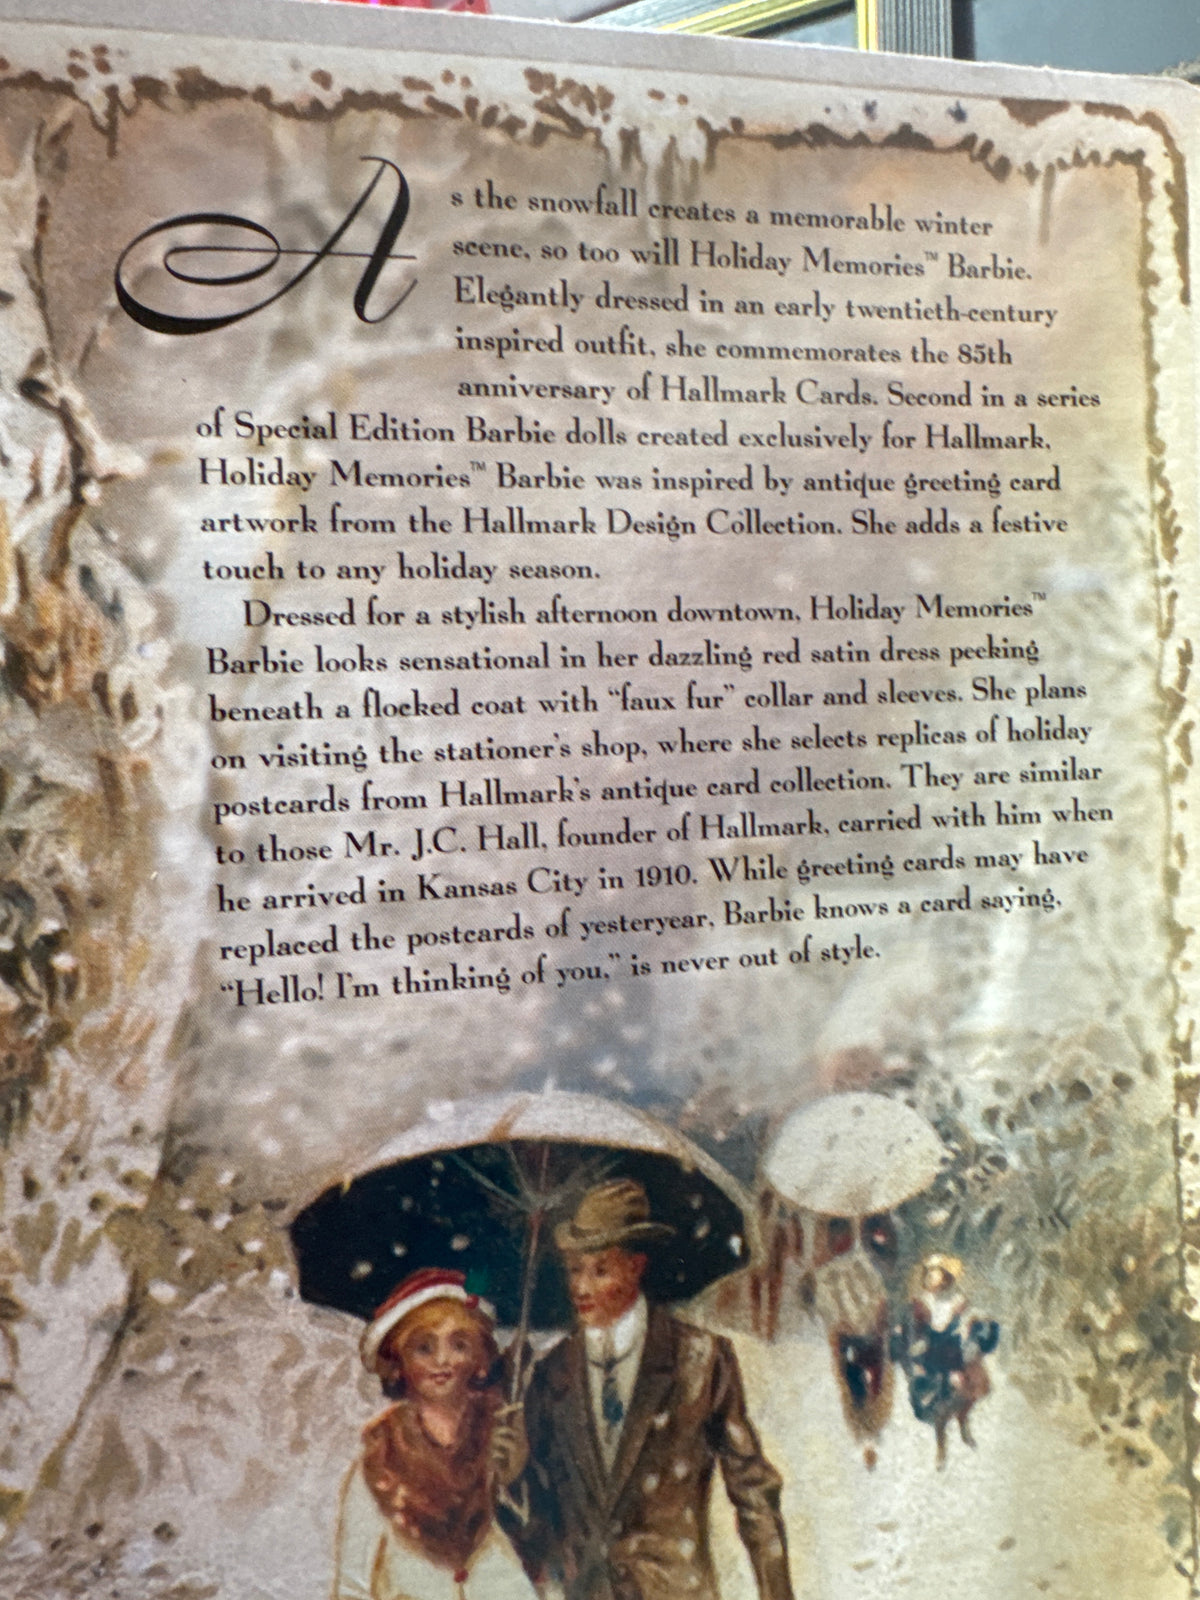 As the snowfall creates a memorable winter
scene, so too will Holiday Memories™ Barbie.
Elegantly dressed in an early twentieth-century
inspired outfit, she commemorates the 85th
anniversary of Hallmark Cards. Second in a series
of Special Edition Barbie dolls created exclusively for Hallmark,
Holiday Memories™ Barbie was inspired by antique greeting card
artwork from the Hallmark Design Collection. She adds a festive
touch to any holiday season.
Dressed for a stylish afternoon downtown, Holiday Memories™
Barbie looks sensational in her dazzling red satin dress peeking
beneath a flocked coat with “faux fur” collar and sleeves. She plans
on visiting the stationer's shop, where she selects replicas of holiday
postcards from Hallmark's antique card collection. They are similar
to those Mr. J.C. Hall, founder of Hallmark, carried with him when
he arrived in Kansas City in 1910. While greeting cards may have
replaced the postcards of yesteryear, Barbie knows a card saying,
“Hello! I'm thinking of you,” is never out of style.